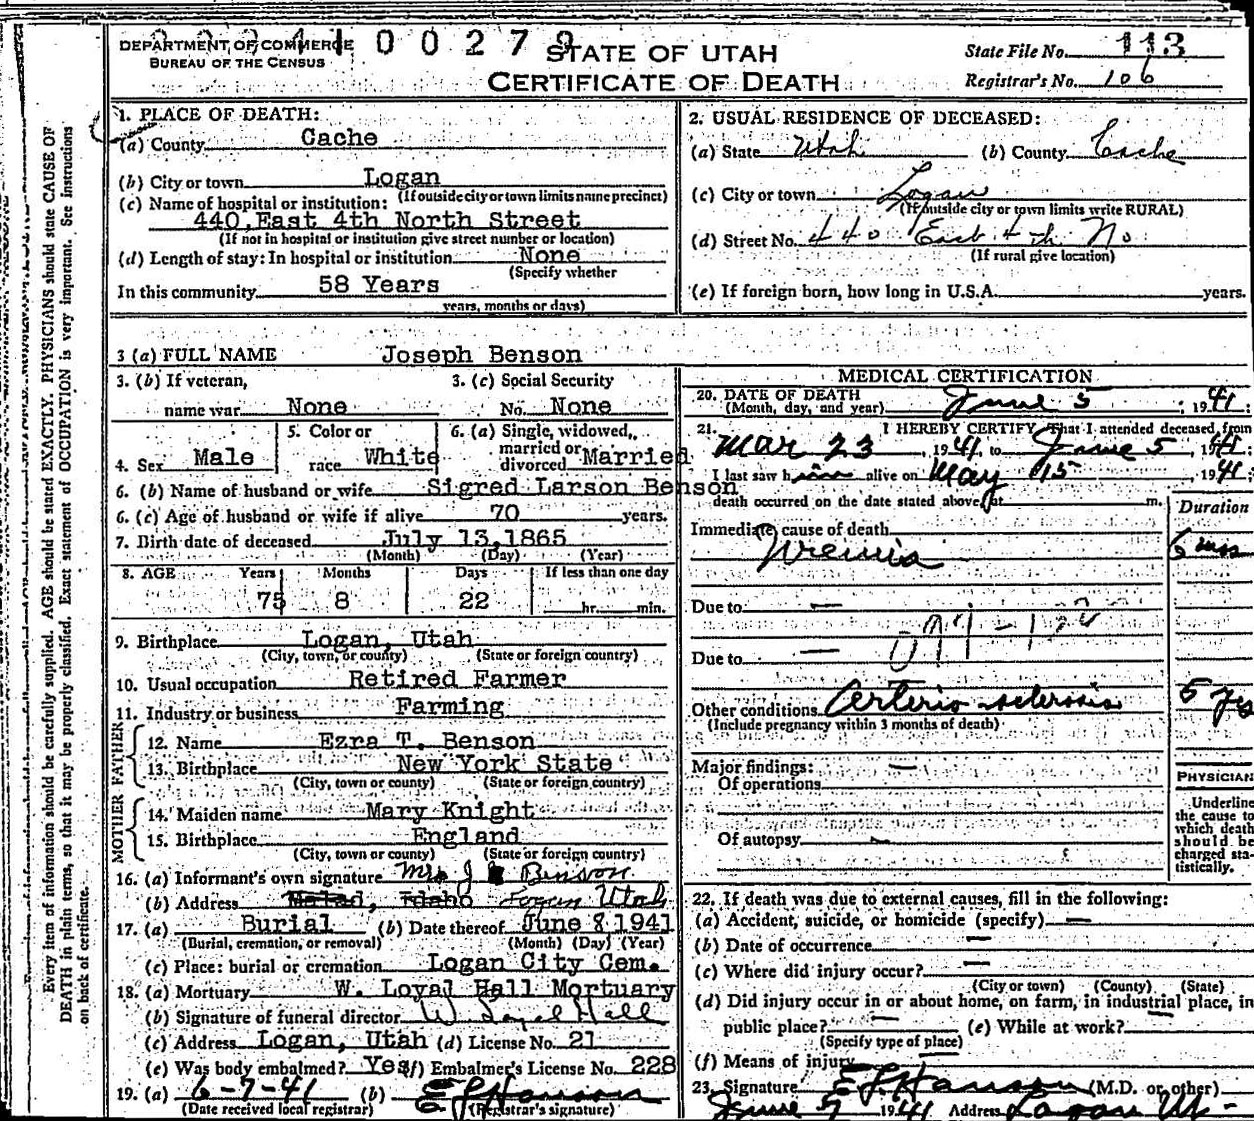 DEPARTMENT OF COMMERCE
BUREAU OF THE CENSUS
00279
STATE OF UTAH
CERTIFICATE OF DEATH
State File No. 113
Registrar's No. 106
Every item of information should be carefully supplied. AGE should be stated EXACTLY. PHYSICIANS should state CAUSE OF
DEATH in plain terms, so that it may be properly classified. Exact statement of OCCUPATION is very important. See instructions
on back of certificate.
1. PLACE OF DEATH:
(a) County Cache
(b) City or town Logan
(If outside city or town limits name precinct)
(c) Name of hospital or institution:
440 East 4th North Street
(If not in hospital or institution give street number or location)
(d) Length of stay: In hospital or institution None
(Specify whether
In this community 58 Years
years, months or days)
2. USUAL RESIDENCE OF DECEASED:
(a) State Utah (b) County Cache
(c) City or town Logan
(If outside city or town limits write RURAL)
(d) Street No. 440 East 4th No.
(If rural give location)
(e) If foreign born, how long in U.S.A. years.
3 (a) FULL NAME Joseph Benson
3. (b) If veteran,
name war None
3. (c) Social Security
No. None
4. Sex Male
5. Color or
race White
6. (a) Single, widowed,
married or
divorced Married
6. (b) Name of husband or wife Sigred Larson Benson
6. (c) Age of husband or wife if alive 70 years.
7. Birth date of deceased July 13, 1865
(Month) (Day) (Year)
8. AGE Years Months Days If less than one day
75 8 22 hr. min.
9. Birthplace Logan, Utah
(City, town, or county) (State or foreign country)
10. Usual occupation Retired Farmer
11. Industry or business Farming
FATHER
12. Name Ezra T. Benson
13. Birthplace New York State
(City, town or county) (State or foreign country)
MOTHER
14. Maiden name Mary Knight
15. Birthplace England
(City, town or county) (State or foreign country)
16. (a) Informant's own signature Mrs J Benson
(b) Address Malad, Idaho Logan Utah
17. (a) Burial (b) Date thereof June 8 1941
(Burial, cremation, or removal) (Month) (Day) (Year)
(c) Place: burial or cremation Logan City Cem.
18. (a) Mortuary W. Loyal Hall Mortuary
(b) Signature of funeral director W Loyal Hall
(c) Address Logan, Utah (d) License No. 21
(e) Was body embalmed? Yes (f) Embalmer's License No. 228
19. (a) 6-7-41 (b) E L Hanson
(Date received local registrar) (Registrar's signature)
MEDICAL CERTIFICATION
20. DATE OF DEATH
(Month, day, and year) June 5, 1941;
21. I HEREBY CERTIFY, That I attended deceased from
Mar 23, 1941, to June 5, 1941;
I last saw him alive on May 15, 1941;
death occurred on the date stated above, at m.
Duration
Immediate cause of death
Uremia 6 mos
Due to —
Due to —
Other conditions Arterio-sclerosis 5 yrs
(Include pregnancy within 3 months of death)
Major findings: —
Of operations
Of autopsy
PHYSICIAN
Underline
the cause to
which death
should be
charged sta-
tistically.
22. If death was due to external causes, fill in the following:
(a) Accident, suicide, or homicide (specify) —
(b) Date of occurrence —
(c) Where did injury occur? —
(City or town) (County) (State)
(d) Did injury occur in or about home, on farm, in industrial place, in
public place? — (e) While at work? —
(Specify type of place)
(f) Means of injury —
23. Signature E L Hanson (M.D. or other)
June 7 1941 Address Logan Ut-